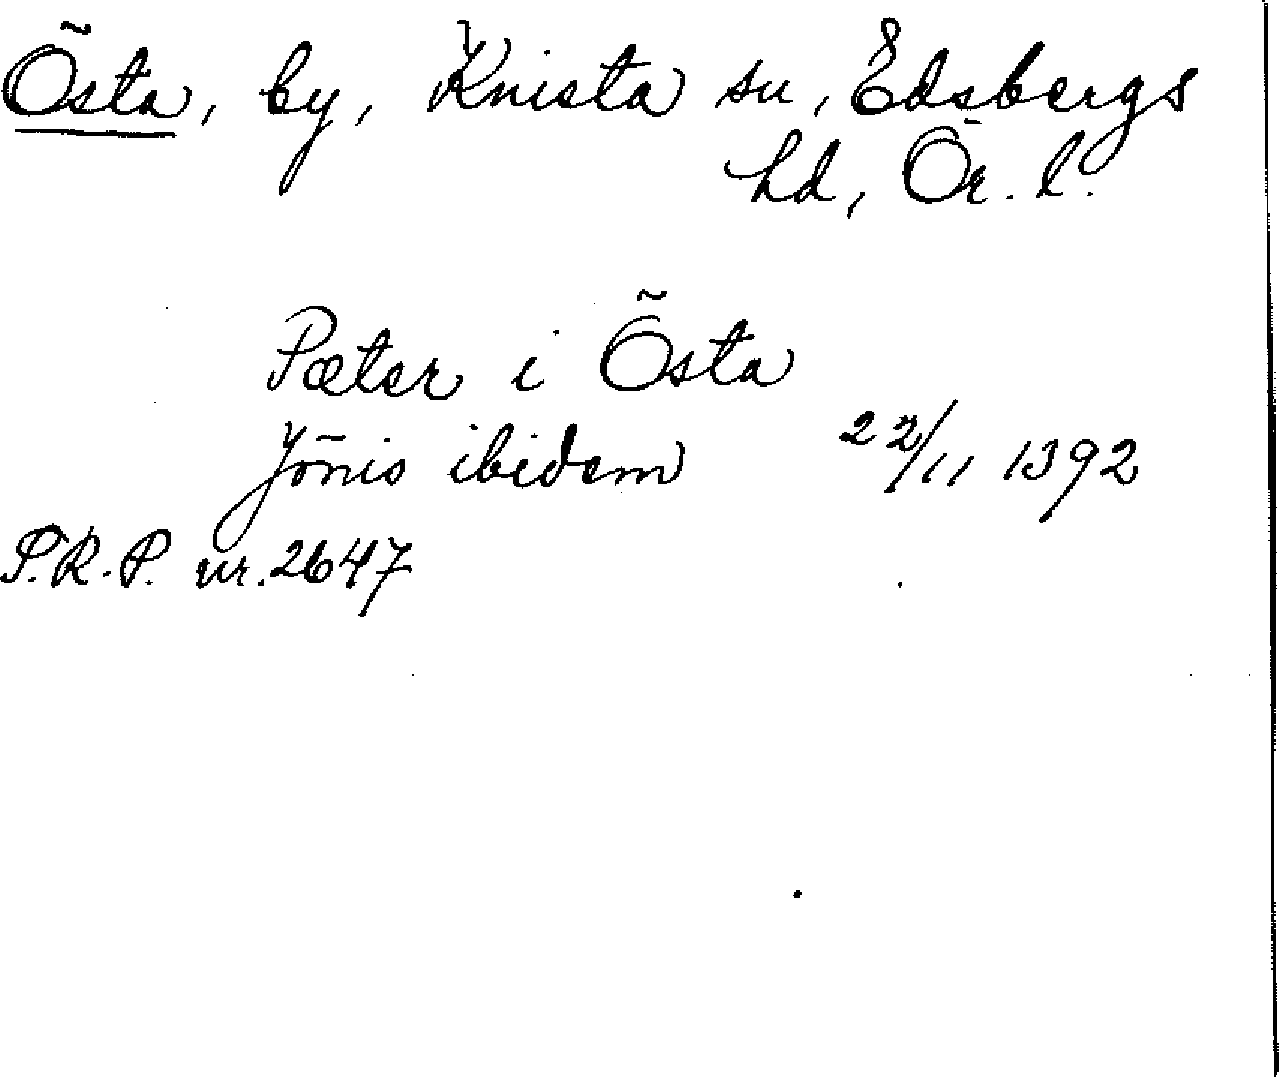 Östa, by, Knista sn, Edsbergs
hd, Ör. l.
Pæter i Östa
Jönis ibidem 22/11 1392
S.R.P. nr. 2647